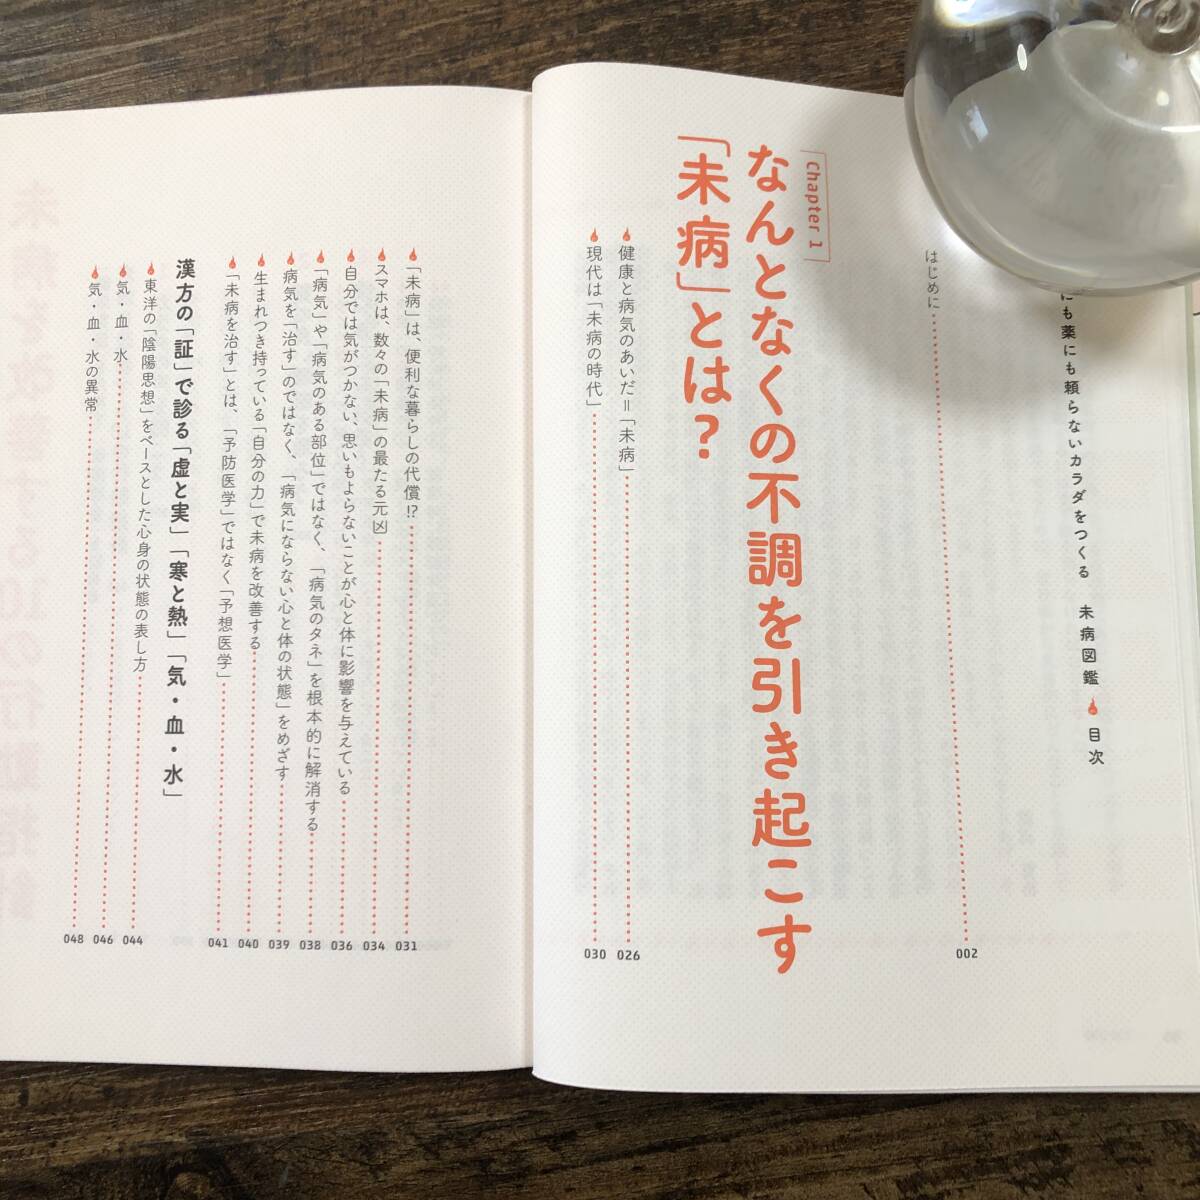 にも薬にも頼らないカラダをつくる 未病図鑑 目次
はじめに 002
Chapter 1
なんとなくの不調を引き起こす
「未病」とは?
健康と病気のあいだ=「未病」 026
現代は「未病の時代」 030
「未病」は、便利な暮らしの代償!? 031
スマホは、数々の「未病」の最たる元凶 034
自分では気がつかない、思いもよらないことが心と体に影響を与えている 036
「病気」や「病気のある部位」ではなく、「病気のタネ」を根本的に解消する 038
病気を「治す」のではなく、「病気にならない心と体の状態」をめざす 039
生まれつき持っている「自分の力」で未病を改善する 040
「未病を治す」とは、「予防医学」ではなく「予想医学」 041
漢方の「証」で診る「虚と実」「寒と熱」「気・血・水」
東洋の「陰陽思想」をベースとした心身の状態の表し方 044
気・血・水 046
気・血・水の異常 048